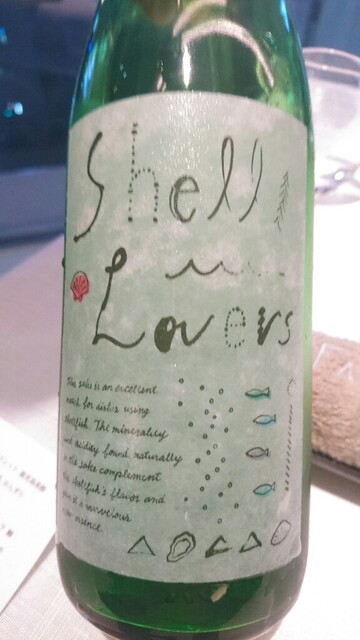 Shell
Lovers
This sake is an excellent
match for dishes using
shellfish. The minerality
and acidity found naturally
in the sakes complement
the shellfish's flavor and
give it a marvelous
new essence.